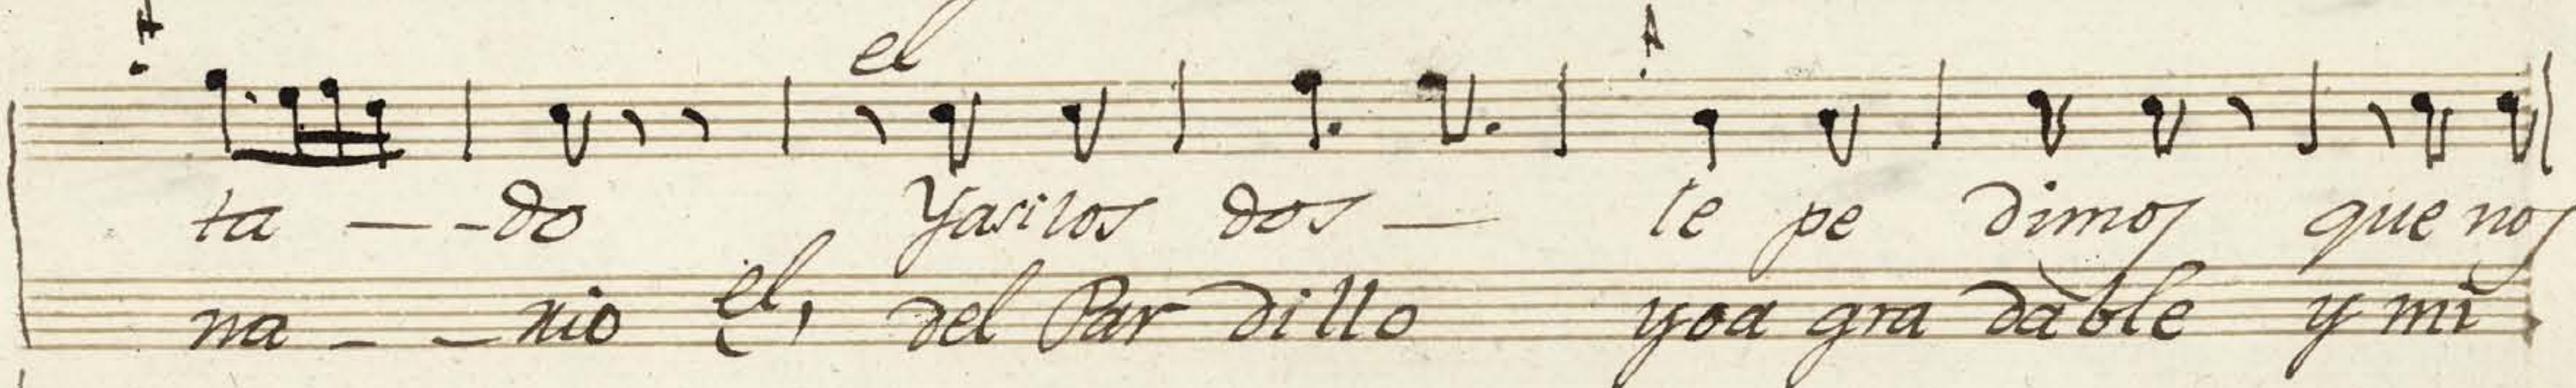 el
ta - - do Yasilos dos - te pe dimos que nos
na - - rio el, del Par dillo yoa gra dable y mi